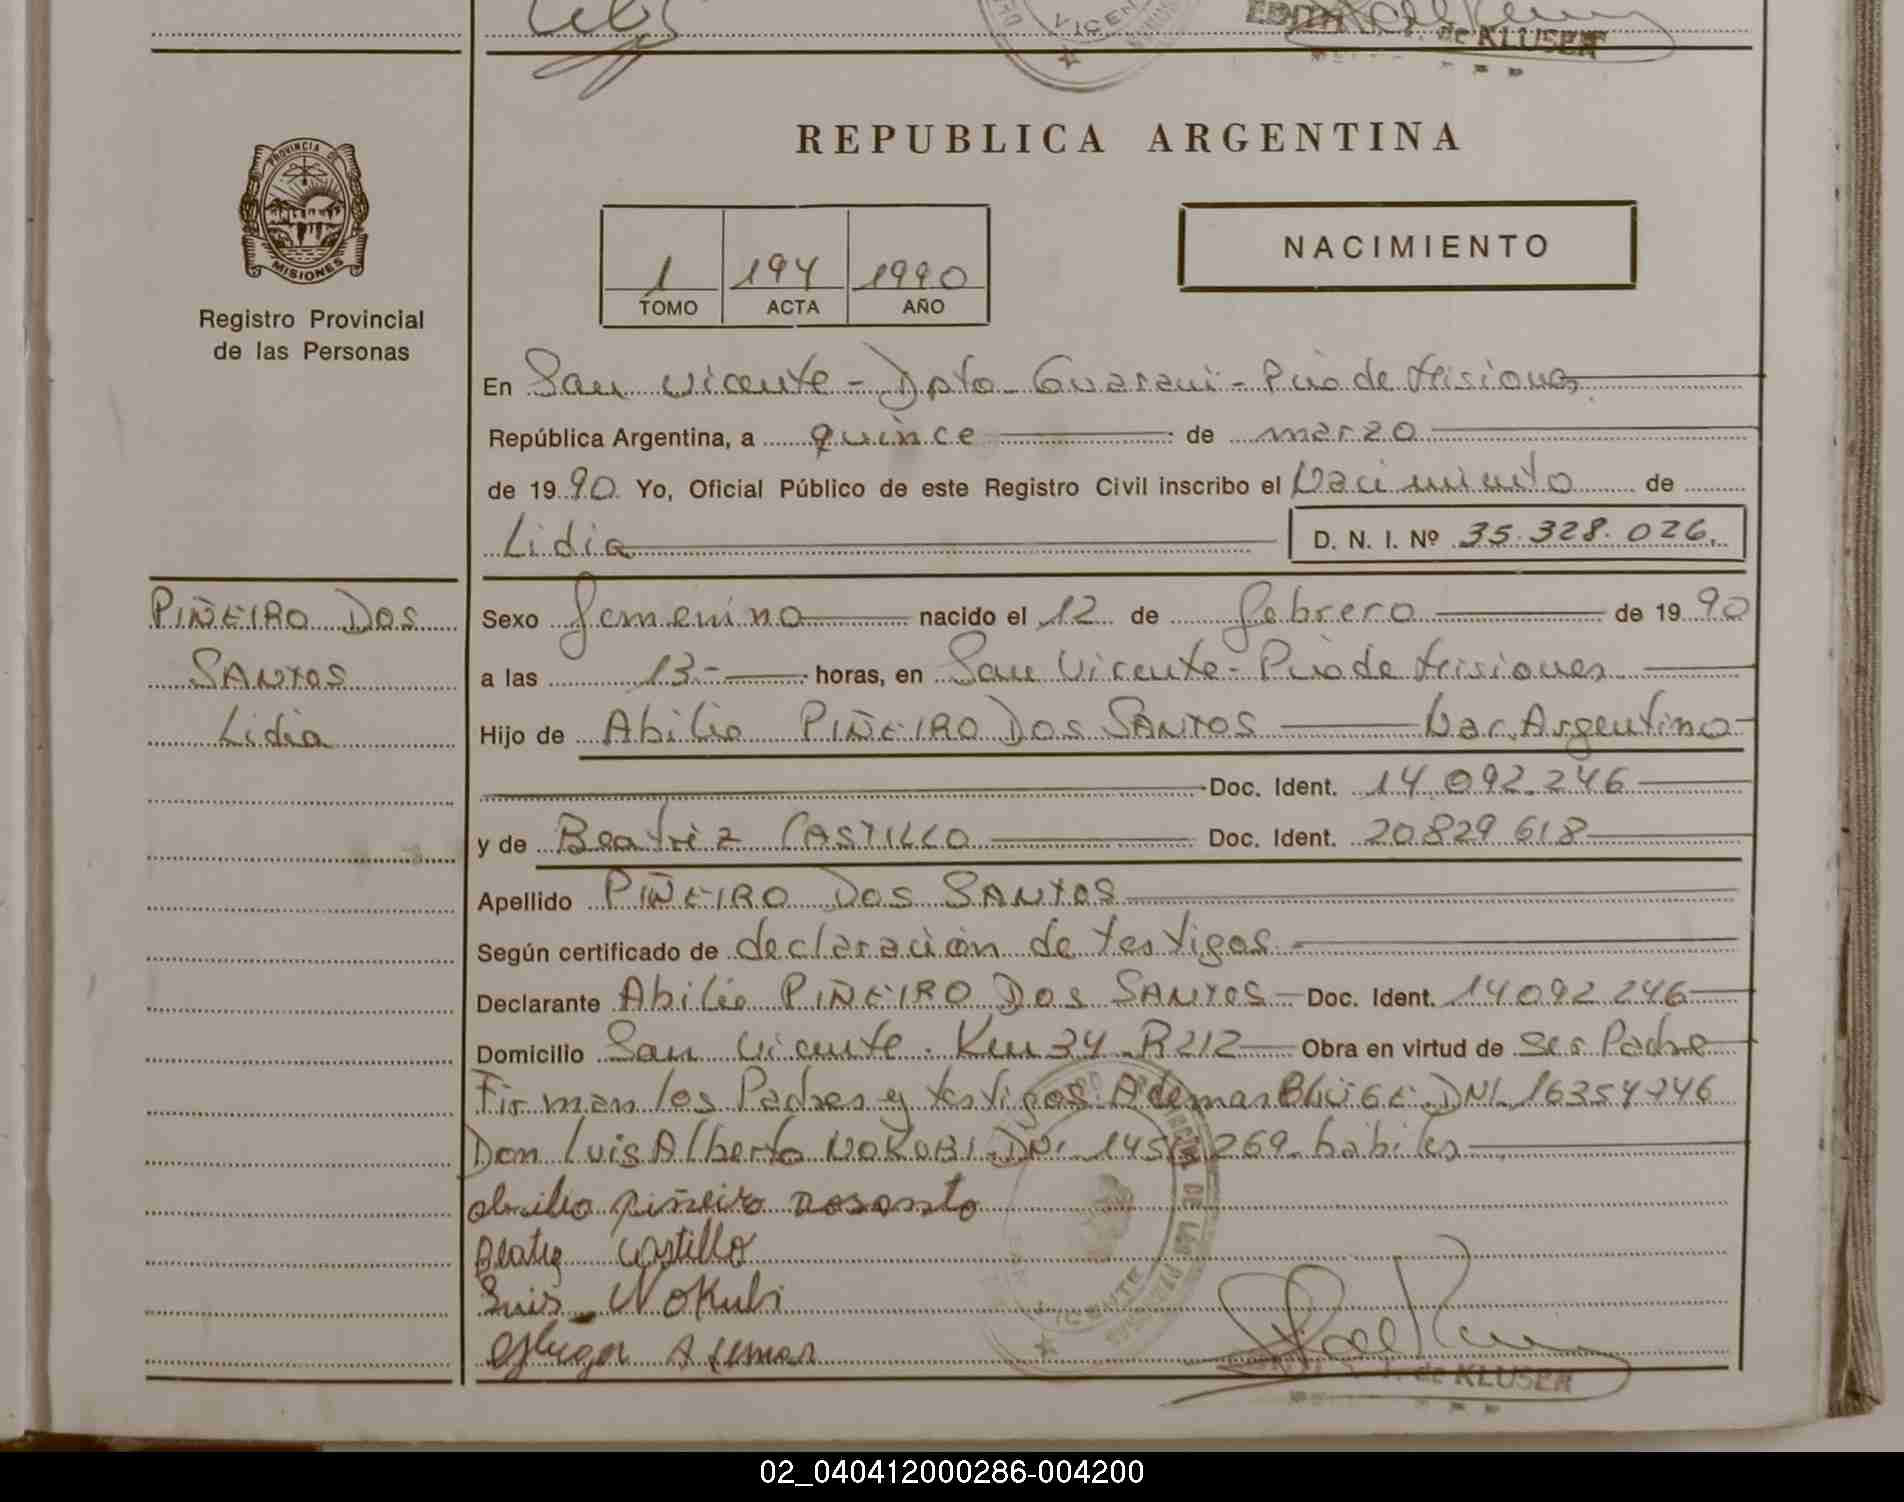 de KLUSER
REPUBLICA ARGENTINA
PROVINCIA DE
MISIONES
Registro Provincial
de las Personas
1 194 1990
TOMO ACTA AÑO
NACIMIENTO
En San Vicente - Dpto Guarani - Pcia de Misiones
República Argentina, a quince de marzo
de 1990 Yo, Oficial Público de este Registro Civil inscribo el Nacimiento de
Lidia D. N. I. Nº 35.328.026.
PIÑEIRO DOS
SANTOS
Lidia
Sexo femenino nacido el 12 de febrero de 1990
a las 13- horas, en San Vicente - Pcia de Misiones
Hijo de Abilio PIÑEIRO DOS SANTOS Nac. Argentino
Doc. Ident. 14.092.246
y de Beatriz CASTILLO Doc. Ident. 20829618
Apellido PIÑEIRO DOS SANTOS
Según certificado de declaración de testigos
Declarante Abilio PIÑEIRO DOS SANTOS Doc. Ident. 14092246
Domicilio San Vicente. Km 34 R212 Obra en virtud de ser Padre
Firman los Padres y testigos Ademar DNI
Don Luis Alberto NOKUBI DNI 269 habiles
piñeiro
Beatriz Castillo
Luis Nokubi
Ademar
VICENTE
de KLUSER
02_040412000286-004200